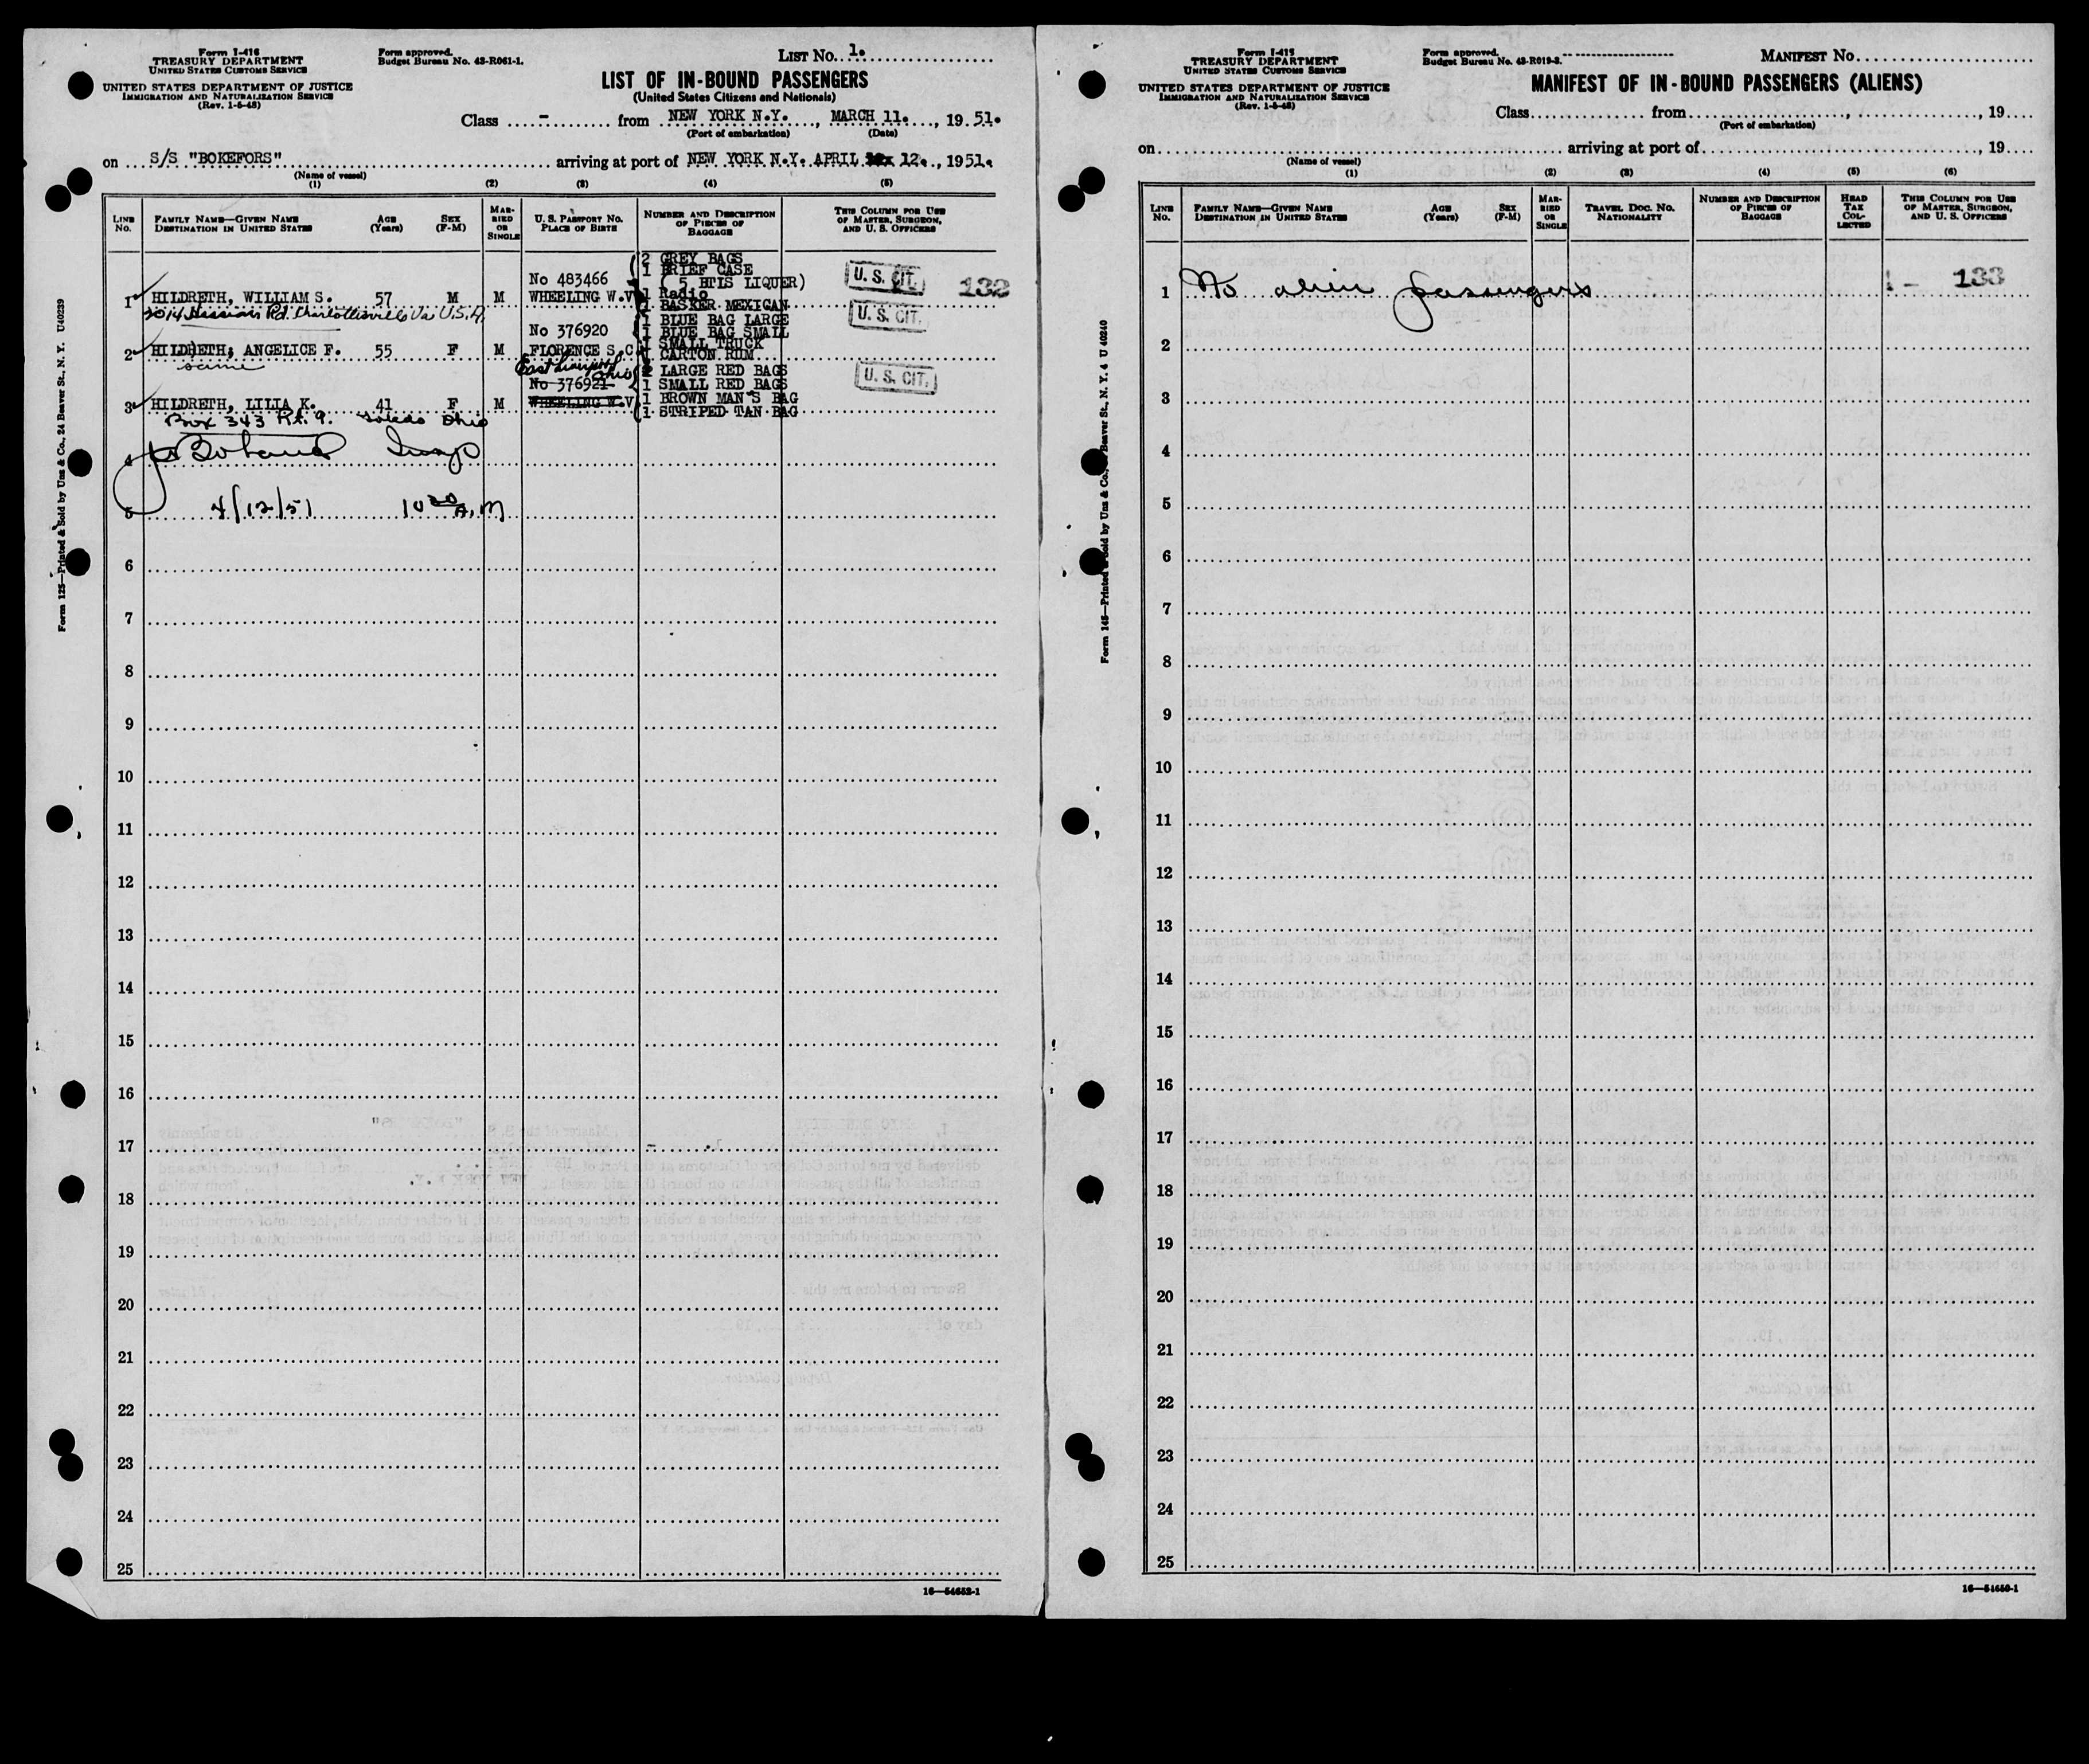 Form I-416
TREASURY DEPARTMENT
UNITED STATES CUSTOMS SERVICE
UNITED STATES DEPARTMENT OF JUSTICE
IMMIGRATION AND NATURALIZATION SERVICE
(Rev. 1-6-48)
Form approved.
Budget Bureau No. 43-R061-1.
LIST No. 1.
LIST OF IN-BOUND PASSENGERS
(United States Citizens and Nationals)
Class - from NEW YORK N.Y., MARCH 11., 1951.
(Port of embarkation) (Date)
on S/S "BOKEFORS" arriving at port of NEW YORK N.Y. APRIL 12., 1951.
(Name of vessel)
(1) (2) (3) (4) (5)
LINE No.
FAMILY NAME—GIVEN NAME
DESTINATION IN UNITED STATES
AGE (Years)
SEX (F-M)
MARRIED OR SINGLE
U. S. PASSPORT NO.
PLACE OF BIRTH
NUMBER AND DESCRIPTION OF PIECES OF BAGGAGE
THIS COLUMN FOR USE OF MASTER, SURGEON, AND U. S. OFFICERS
2 GREY BAGS
1 BRIEF CASE
No 483466 ( 5 BTIS LIQUER) U. S. CIT. 132
1 HILDRETH, WILLIAM S. 57 M M WHEELING W.V 1 Radio
1 BASKER MEXICAN
Rd. Charlottesville Va. U.S.A.
1 BLUE BAG LARGE U. S. CIT.
No 376920 1 BLUE BAG SMALL
1 SMALL TRUCK
2 HILDRETH, ANGELICE F. 55 F M FLORENCE S.C. 1 CARTON RUM
same
East Liverpool Ohio
2 LARGE RED BAGS U. S. CIT.
No 376921 1 SMALL RED BAGS
3 HILDRETH, LILIA K. 41 F M WHEELING W.V 1 BROWN MAN'S BAG
1 STRIPED TAN BAG
Box 343 Rt. 9. Toledo Ohio
4
5 4/12/51 10 30 A.M
6
7
8
9
10
11
12
13
14
15
16
17
18
19
20
21
22
23
24
25
16—54652-1
Form 125—Printed & Sold by Unz & Co., 24 Beaver St., N. Y. U40239
Form I-415
TREASURY DEPARTMENT
UNITED STATES CUSTOMS SERVICE
UNITED STATES DEPARTMENT OF JUSTICE
IMMIGRATION AND NATURALIZATION SERVICE
(Rev. 1-6-48)
Form approved.
Budget Bureau No. 43-R019-3.
MANIFEST No.
MANIFEST OF IN-BOUND PASSENGERS (ALIENS)
Class from , , 19
(Port of embarkation)
on arriving at port of , 19
(Name of vessel)
(1) (2) (3) (4) (5) (6)
LINE No.
FAMILY NAME—GIVEN NAME
DESTINATION IN UNITED STATES
AGE (Years)
SEX (F-M)
MARRIED OR SINGLE
TRAVEL DOC. NO.
NATIONALITY
NUMBER AND DESCRIPTION OF PIECES OF BAGGAGE
HEAD TAX COLLECTED
THIS COLUMN FOR USE OF MASTER, SURGEON, AND U. S. OFFICERS
1 No alien passengers 133
2
3
4
5
6
7
8
9
10
11
12
13
14
15
16
17
18
19
20
21
22
23
24
25
16—54650-1
Form 145—Printed & Sold by Unz & Co., Beaver St., N. Y. 4 U 40240